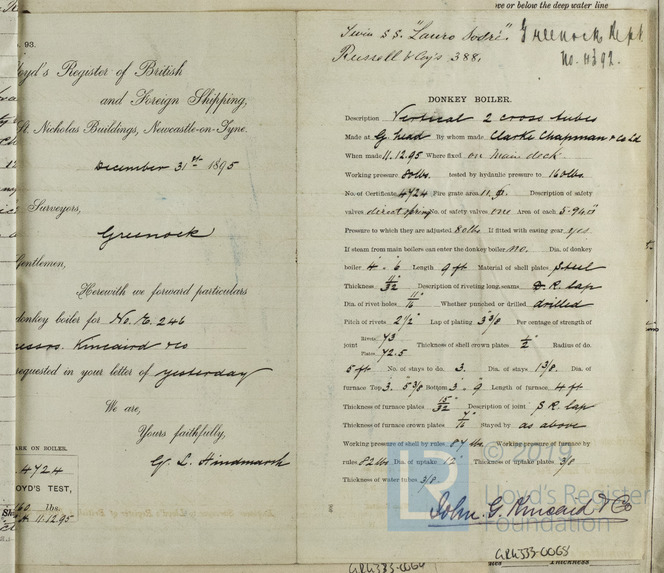 ve or below the deep water line
. 93.
loyd's Register of British
and Foreign Shipping,
St. Nicholas Buildings, Newcastle-on-Tyne.
December 31st 1895
Surveyors,
Greenock
Gentlemen,
Herewith we forward particulars
donkey boiler for No. E. 246
essrs. Kincaird & Co
requested in your letter of yesterday
We are,
Yours faithfully,
G. L. Hindmarsh
ARK ON BOILER.
4724
OYD'S TEST,
160 lbs.
11.12.95
Twin S.S. "Lauro Sodré".
Greenock Rept
No. 4392.
Russell & Coy's 388.
DONKEY BOILER.
Description Vertical 2 cross tubes
Made at G'head By whom made Clarke Chapman & Co Ld
When made 11.12.95 Where fixed on main deck.
Working pressure 80lbs. tested by hydraulic pressure to 160lbs.
No. of Certificate 4724 Fire grate area 11. Description of safety
valves direct spring No. of safety valves one Area of each 5.94"
Pressure to which they are adjusted 80lbs If fitted with easing gear yes
If steam from main boilers can enter the donkey boiler no. Dia. of donkey
boiler 4.6 Length 9ft Material of shell plates Steel
Thickness 11/32" Description of riveting long. seams D.R. lap
Dia. of rivet holes 11/16" Whether punched or drilled drilled
Pitch of rivets 2 1/2" Lap of plating 3 3/8 Per centage of strength of
joint Rivets 73 Plates 72.5 Thickness of shell crown plates 1/2" Radius of do.
5ft No. of stays to do. 3. Dia. of stays 1 3/8. Dia. of
furnace Top 3. 5 3/8 Bottom 3. 9 Length of furnace 4ft
Thickness of furnace plates 15/32" Description of joint S.R. lap
Thickness of furnace crown plates 7/16" Stayed by as above
Working pressure of shell by rules 87 lbs. Working pressure of furnace by
rules 82lbs Dia. of uptake 12" Thickness of uptake plates 3/8
Thickness of water tubes 3/8
John. G. Kincaird & Co
© 2019
LR
Lloyd's Register
Foundation
GRK383-0064
GRK383-0068
Thickness